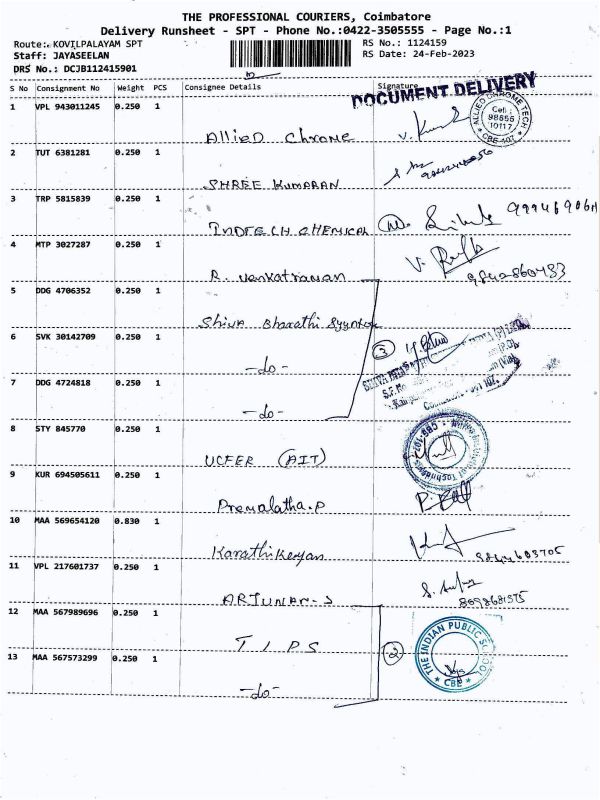 THE PROFESSIONAL COURIERS, Coimbatore
Delivery Runsheet - SPT - Phone No.:0422-3505555 - Page No.:1
Route: KOVILPALAYAM SPT RS No.: 1124159
Staff: JAYASEELAN RS Date: 24-Feb-2023
DRS No.: DCJB112415901
S No Consignment No Weight PCS Consignee Details Signature
DOCUMENT DELIVERY
1 VPL 943011245 0.250 1 Allied Chrome V.
ALLIED CHROME TECH Cell : 98656 10117 CBE-107
2 TUT 6381281 0.250 1 SHREE KUMARAN
3 TRP 5815839 0.250 1 INDTECH CHEMICAL
4 MTP 3027287 0.250 1 R. Venkatraman V. 9842860483
5 DDG 4706352 0.250 1 Shiva Bharathi
6 SVK 30142709 0.250 1 -do- 3
7 DDG 4724818 0.250 1 -do-
8 STY 845770 0.250 1 UCFER (AIT)
9 KUR 694505611 0.250 1 Premalatha.P
10 MAA 569654120 0.830 1 Karathikeyan
11 VPL 217601737 0.250 1 ARJUNAN-S
12 MAA 567989696 0.250 1 TIPS
THE INDIAN PUBLIC SCHOOL CBE
13 MAA 567573299 0.250 1 -do- 2